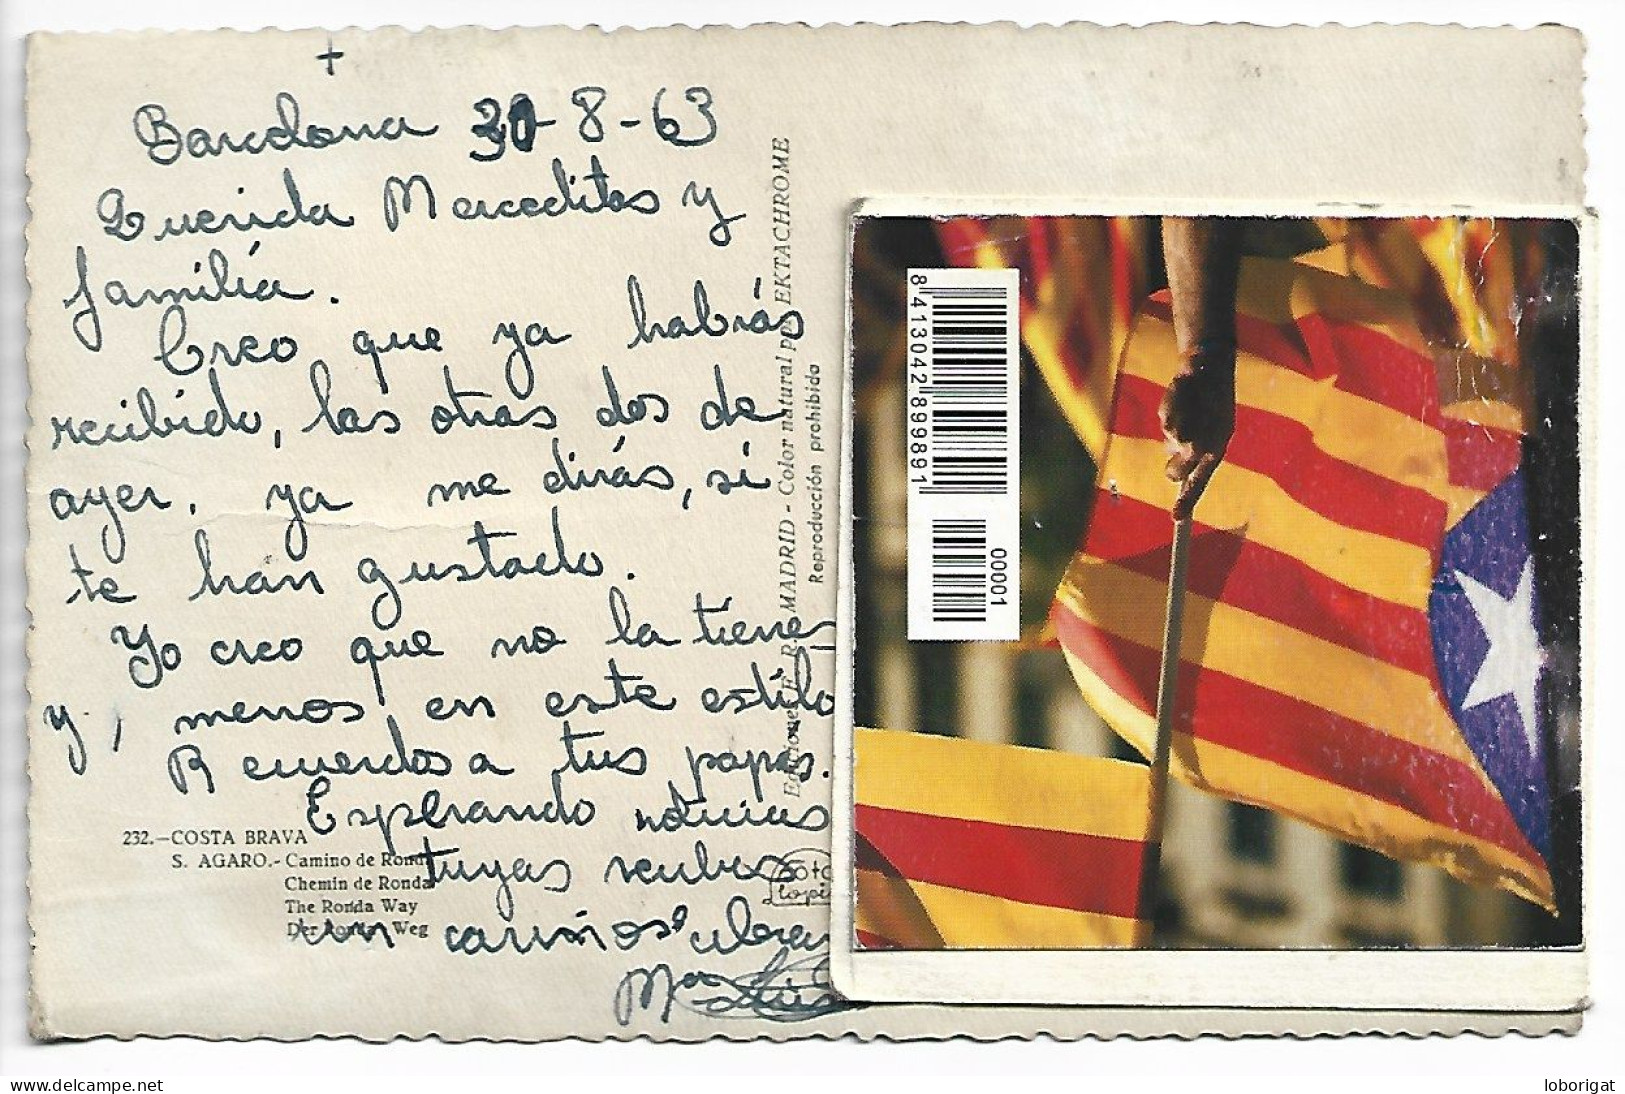 +
Barcelona 30-8-63
Querida Merceditas y
familia.
Creo que ya habrás
recibido, las otras dos de
ayer, ya me dirás, si
te han gustado.
Yo creo que no la tienes
y, menos en este estilo
Recuerdos a tus papás.
Esperando noticias
tuyas recibes
un cariñoso abrazo
Mª Luisa
232.—COSTA BRAVA
S. AGARO.- Camino de Ronda
Chemin de Ronda
The Ronda Way
Der Ronda-Weg
Ediciones F. R. MADRID - Color natural por EKTACHROME
Reproducción prohibida
Foto
Lopi
8413042899891
00001
delcampe.net
loborigat